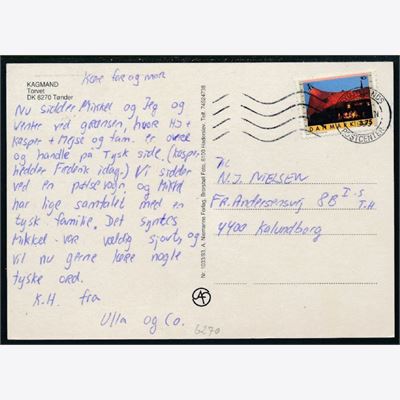 KAGMAND
Torvet
DK 6270 Tønder
Kære far og mor
Nu sidder Mikkel og Jeg og
venter ved grænsen, hvor HJ +
Kasper + Mejse og fam. er ovre
og handle på Tysk side. (Kasper
hedder Frederik idag.) Vi sidder
ved en pølsevogn, og Mikkel
har lige samtalet med en
tysk familie. Det syntes
Mikkel var vældig sjovt, og
vil nu gerne lære nogle
tyske ord.
K.H. fra
Ulla og Co.
6270
Nr. 1033/93, A. Niemanns Forlag, Brorsbøl Foto, 6100 Haderslev. Telf. 74524738
DANMARK 3.75
POSTCENTER
Til
N.J. NIELSEN
FR. Andersensvej 8B I.S
T.H
4400 Kalundborg